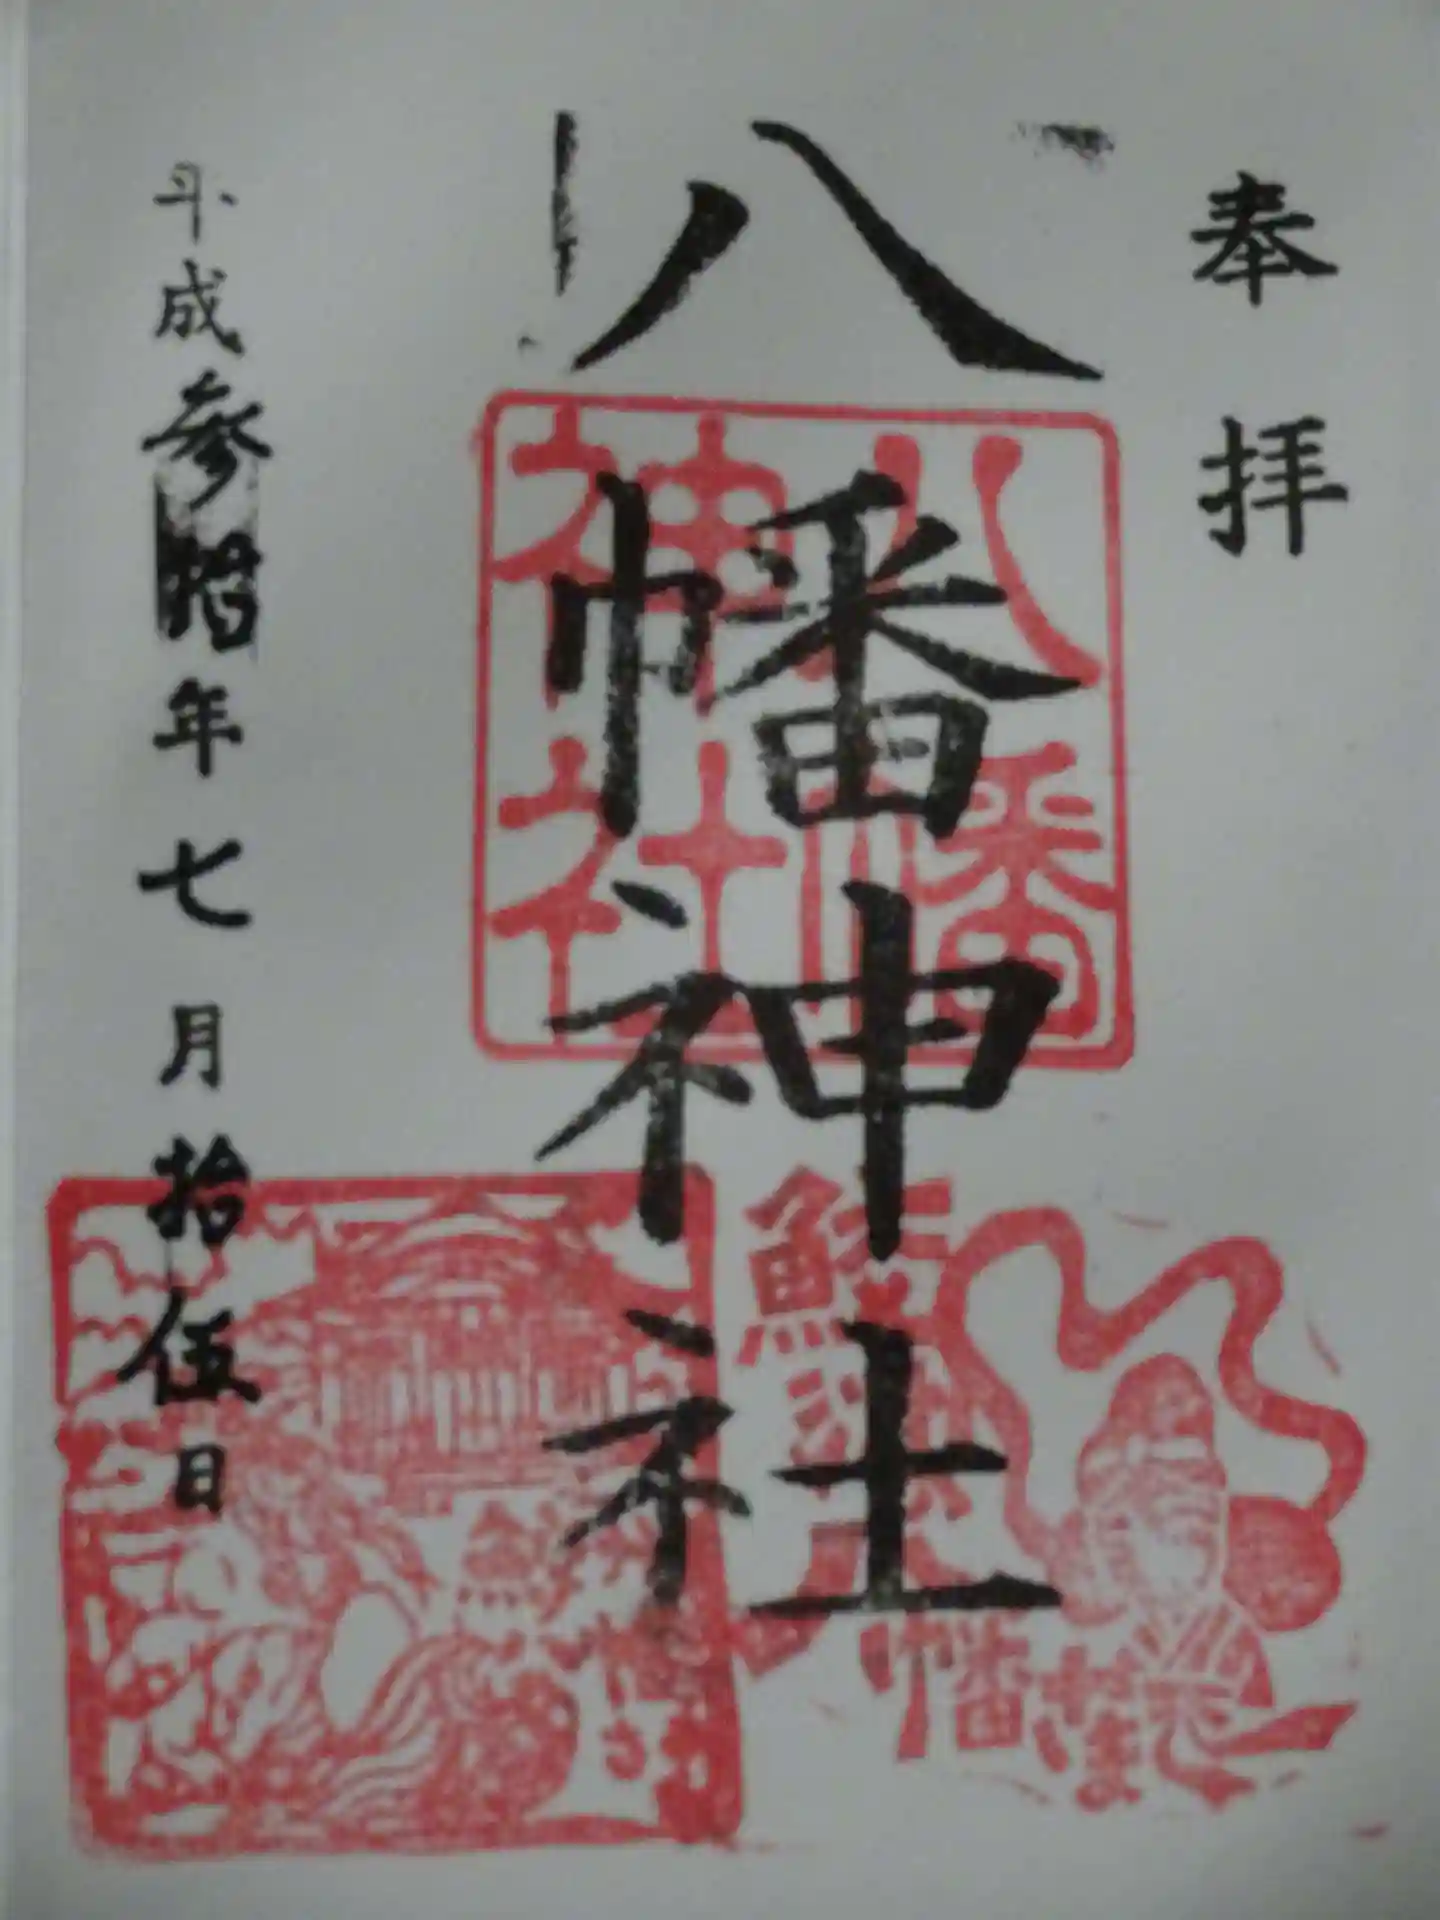 奉拝
八幡神社
八幡
神社
平成参拾年七月拾伍日
八幡さま